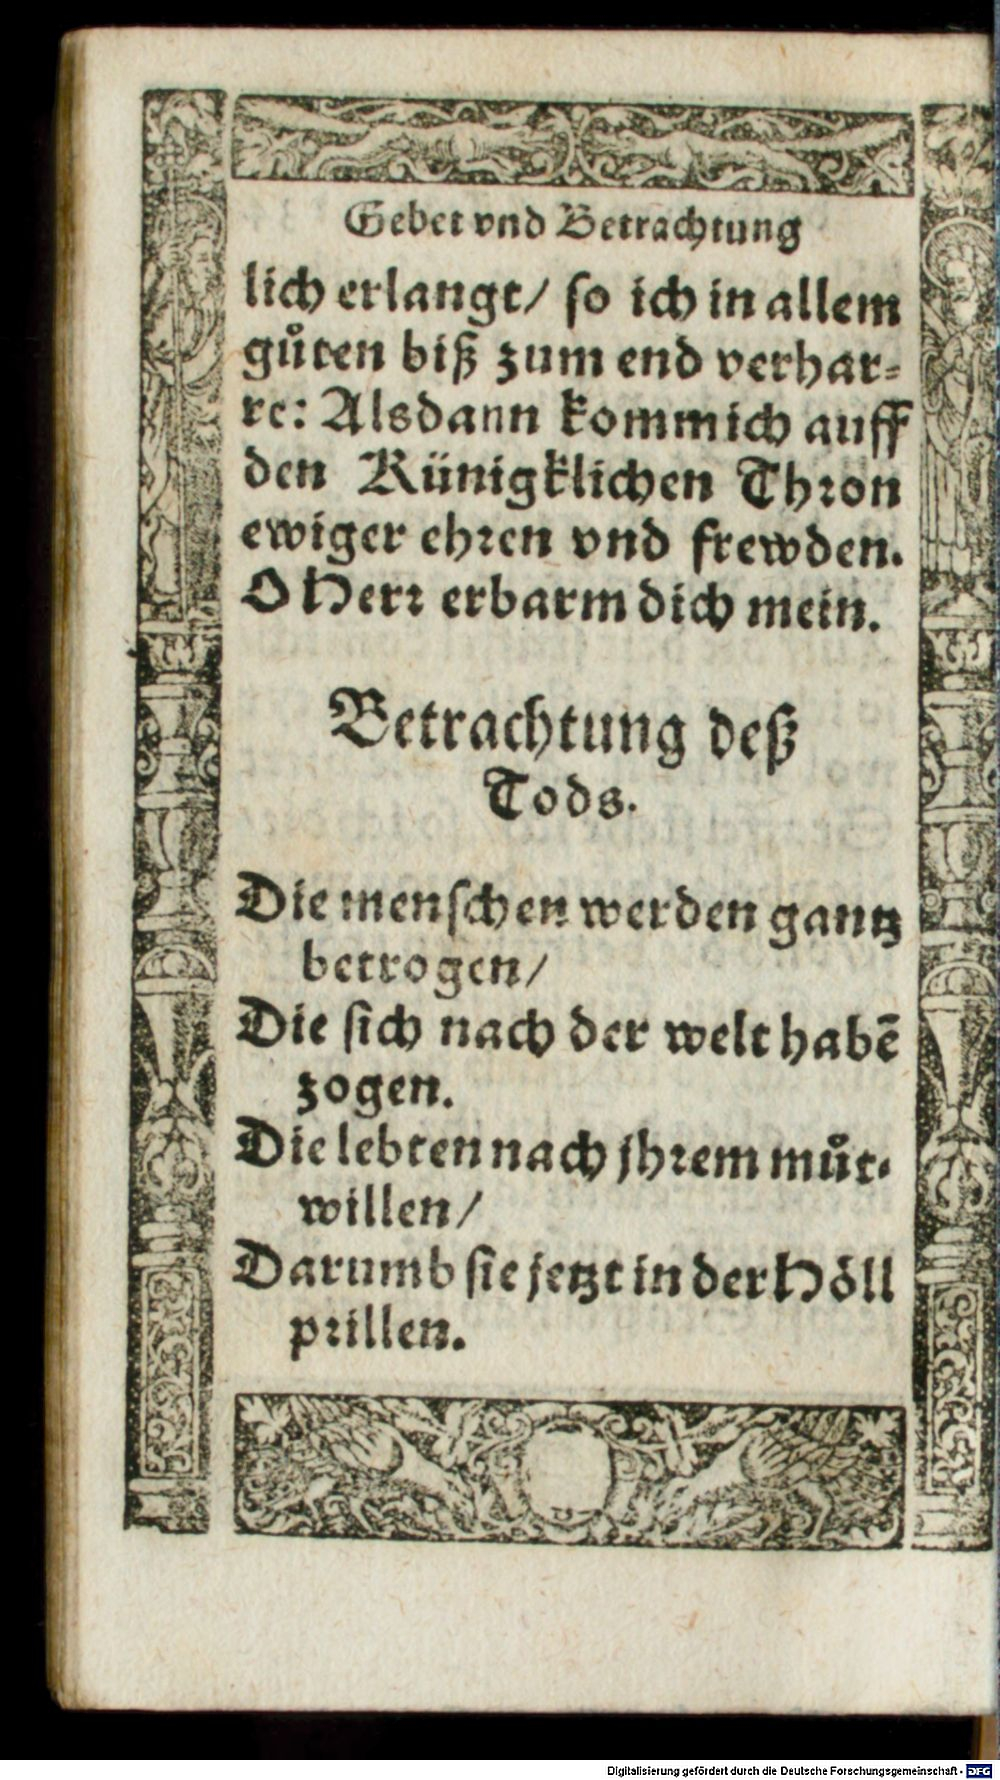 Gebet vnd Betrachtung
lich erlangt/ so ich in allem
gůten biß zum end verhar⸗
re: Alsdann komm ich auff
den Künigklichen Thron
ewiger ehren vnd frewden.
O Herr erbarm dich mein.
Betrachtung deß
Tods.
Die menschen werden gantz
betrogen/
Die sich nach der welt habē
zogen.
Die lebten nach jhrem můt⸗
willen/
Darumb sie jetzt in der Höll
prillen.
Digitalisierung gefördert durch die Deutsche Forschungsgemeinschaft - DFG